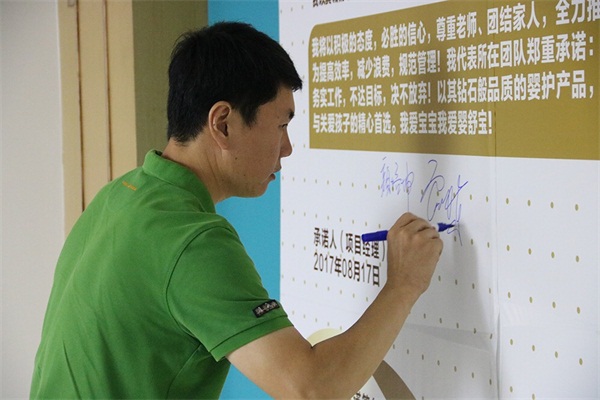 我将以积极的态度，必胜的信心，尊重老师、团结家人，全力推
为提高效率，减少浪费，规范管理！我代表所在团队郑重承诺：
务实工作，不达目标，决不放弃！以其钻石般品质的婴护产品，
与关爱孩子的精心首选。我爱宝宝我爱婴舒宝！
承诺人（项目经理）
2017年08月17日